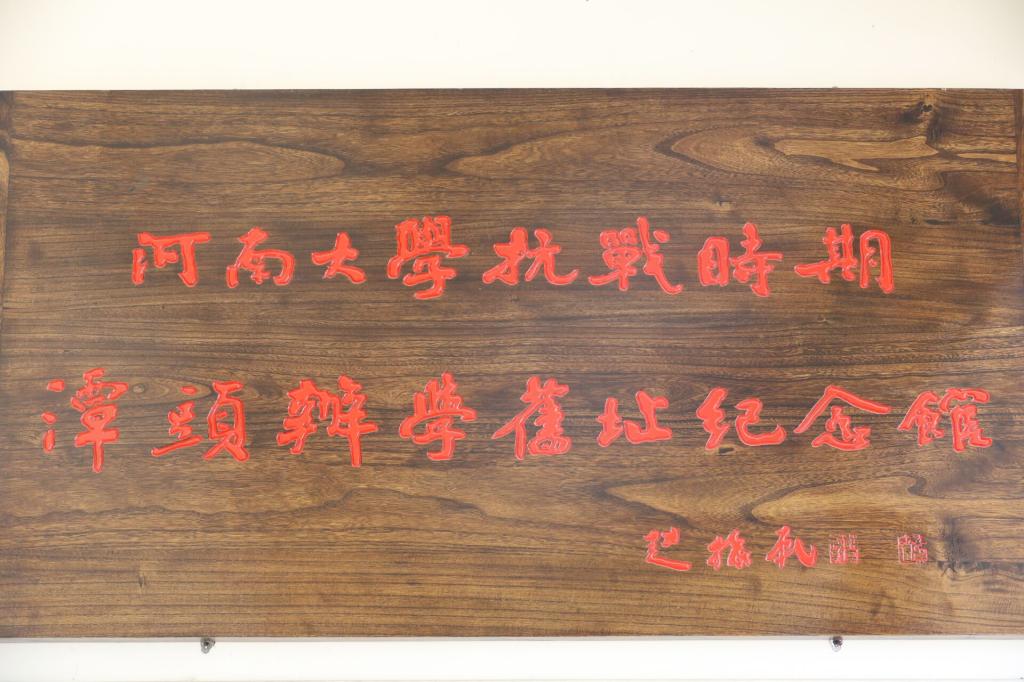 河南大學抗戰時期
潭頭辦學舊址紀念館